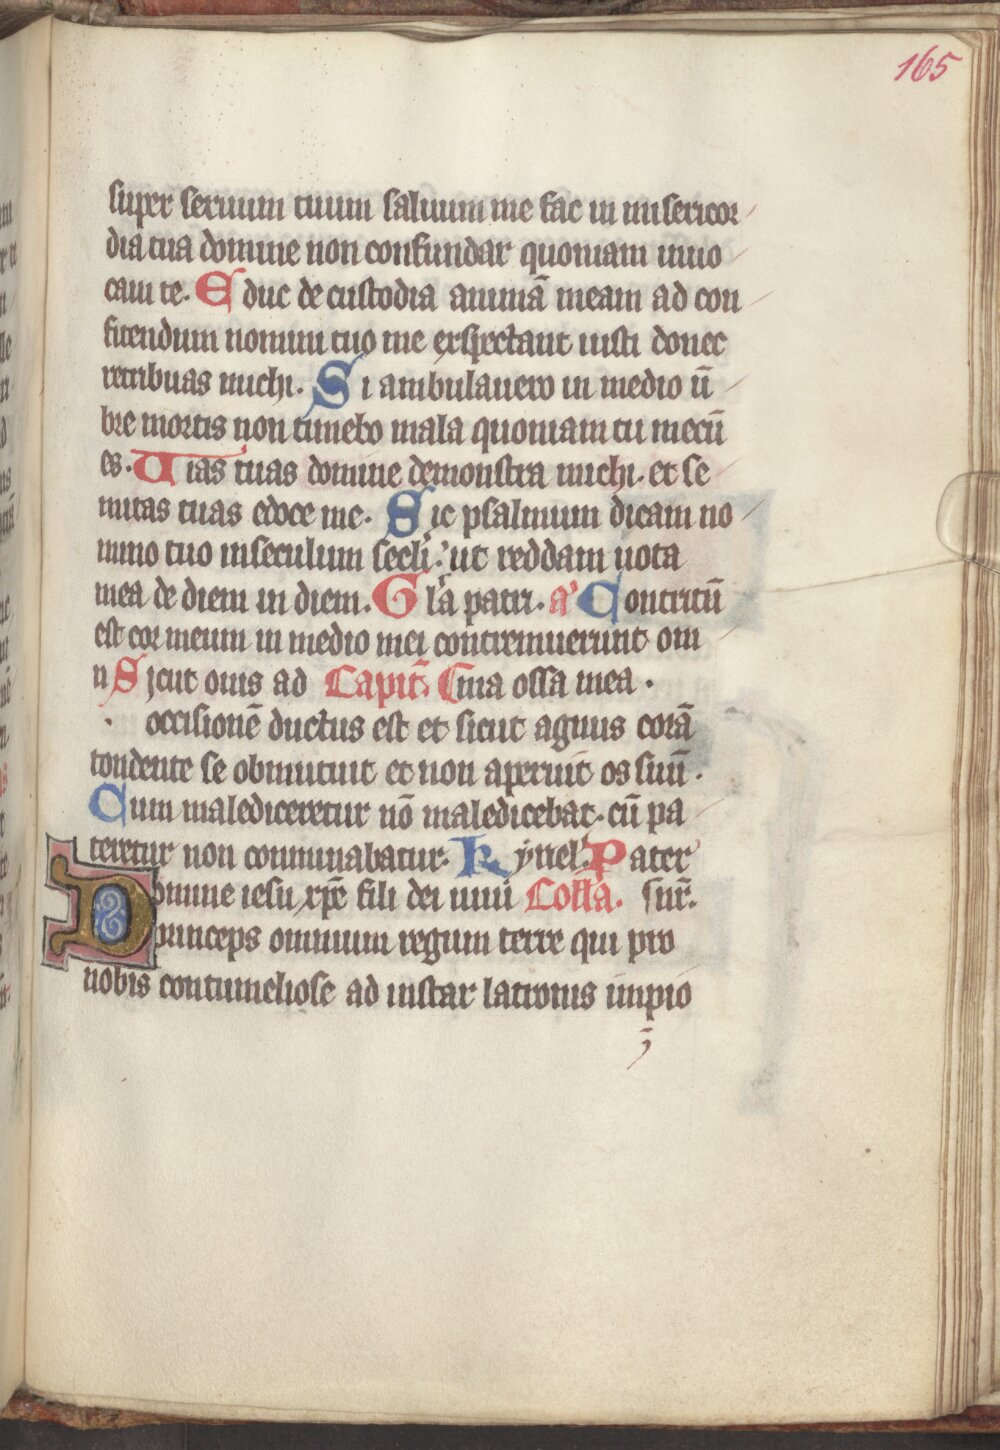 165
super seruum tuum saluum me fac in misericor
dia tua domine non confundar quoniam inuo
caui te. Educ de custodia animā meam ad con
fitendum nomini tuo me exspectant iusti donec
retribuas michi. Si ambulauero in medio ū
bre mortis non timebo mala quoniam tu mecū
es. Uias tuas domine demonstra michi. et se
mitas tuas edoce me. Sic psalmum dicam no
mino tuo in seculum secli. ut reddam uota
mea de diem in diem. Glā patri. a᷎ Contritū
est cor meum in medio mei contremuerunt om
n Sicut ouis ad Capit̄. nia ossa mea.
occisionē ductus est et sicut agnus corā
tondente se obmutuit et non aperuit os suū.
Cum malediceretur nō maledicebat. cū pa
teretur non comminabatur. Kyriel. Pater
Domine iesu xp̄e fili dei uiui Collā. nr̄.
princeps omnium regum terre qui pro
nobis contumeliose ad instar latronis impio